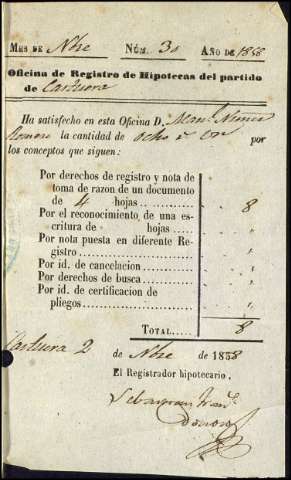 MES DE Nbre NÚM. 30 AÑO DE 1858
Oficina de Registro de Hipotecas del partido
de Castuera
Ha satisfecho en esta Oficina D. Man.l Nuñez
Romero la cantidad de ocho r.s por
los conceptos que siguen:
Por derechos de registro y nota de
toma de razon de un documento
de 4 hojas ............ 8
Por el reconocimiento de una es-
critura de hojas ......
Por nota puesta en diferente Re-
gistro ...............
Por id. de cancelacion ........
Por derechos de busca ........
Por id. de certificacion de
pliegos ...............
TOTAL ..... 8
Castuera 2 de Nbre de 1858
El Registrador hipotecario,
Sebastian